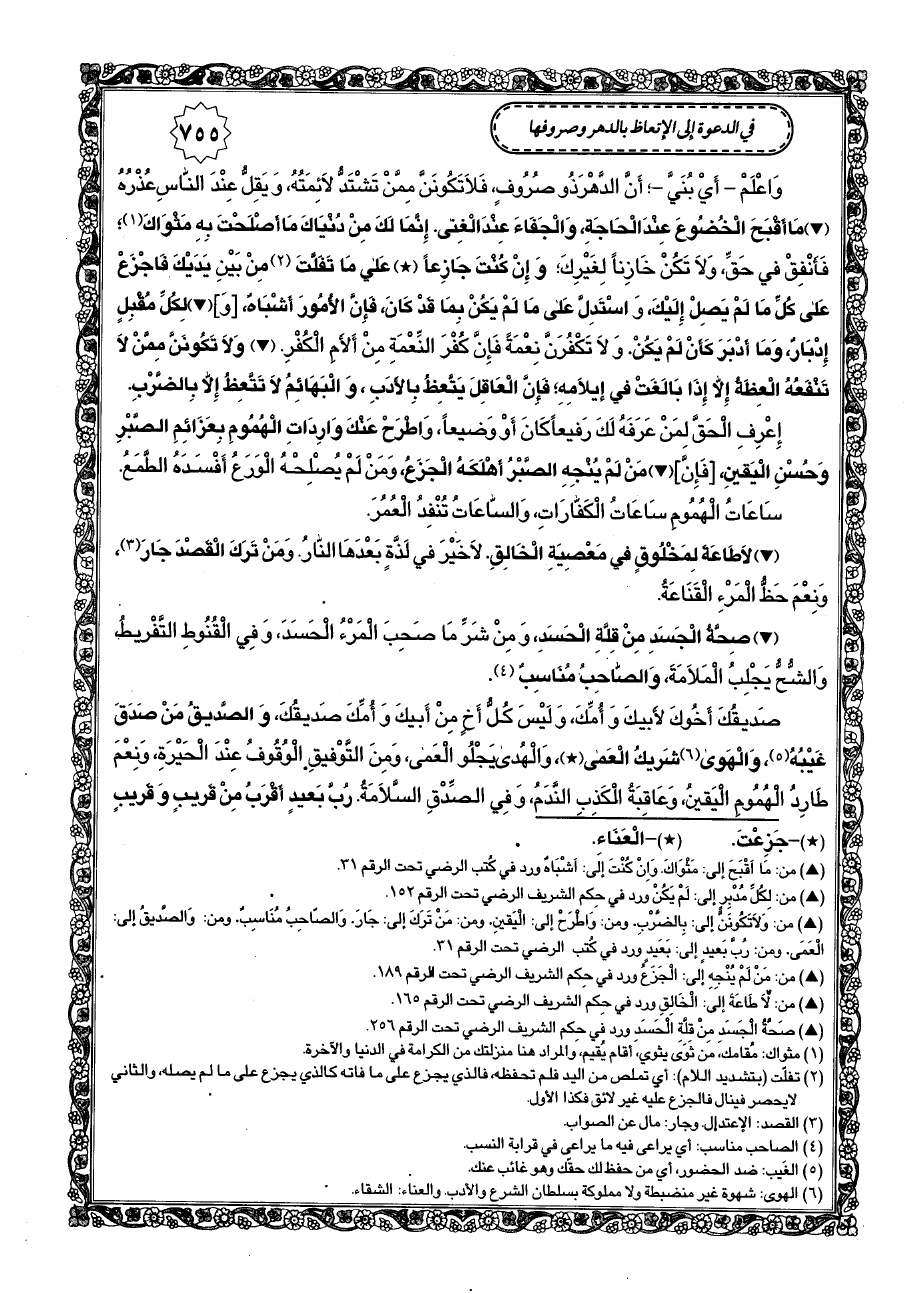 في الدعوة إلى الإتعاظ بالدهر وصروفها
٧٥٥
وَاعْلَمْ – أَيْ بُنَيَّ –؛ أَنَّ الدَّهْرَ ذُو صُرُوفٍ، فَلاَ تَكُونَنَّ مِمَّنْ تَشْتَدُّ لاَئِمَتُهُ، وَ يَقِلُّ عِنْدَ النَّاسِ عُذْرُهُ
(▼) مَا أَقْبَحَ الْخُضُوعَ عِنْدَ الْحَاجَةِ، وَالْجَفَاءَ عِنْدَ الْغِنى. إِنَّمَا لَكَ مِنْ دُنْيَاكَ مَا أَصْلَحْتَ بِهِ مَثْوَاكَ(١)؛
فَأَنْفِقْ في حَقٍّ، وَلاَ تَكُنْ خَازِناً لِغَيْرِكَ؛ وَ إِنْ كُنْتَ جَازِعاً (★) عَلى مَا تَفَلَّتَ (٢) مِنْ بَيْنِ يَدَيْكَ فَاجْزَعْ
عَلى كُلِّ مَا لَمْ يَصِلْ إِلَيْكَ، وَ اسْتَدِلَّ عَلى مَا لَمْ يَكُنْ بِمَا قَدْ كَانَ، فَإِنَّ الأُمُورَ أَشْبَاهٌ، [وَ] (▼) لِكُلِّ مُقْبِلٍ
إِدْبَارٌ، وَمَا أَدْبَرَ كَأَنْ لَمْ يَكُنْ. وَ لاَ تَكْفُرَنَّ نِعْمَةً فَإِنَّ كُفْرَ النِّعْمَةِ مِنْ أَلأَمِ الْكُفْرِ. (▼) وَلاَ تَكُونَنَّ مِمَّنْ لاَ
تَنْفَعُهُ الْعِظَةُ إِلاَّ إِذَا بَالَغْتَ في إيلاَمِهِ؛ فَإِنَّ الْعَاقِلَ يَتَّعِظُ بِالأَدَبِ، وَ الْبَهَائِمُ لاَ تَتَّعِظُ إِلاَّ بِالضَّرْبِ.
إِعْرِفِ الْحَقَّ لِمَنْ عَرَفَهُ لَكَ رَفيعاً كَانَ أَوْ وَضيعاً، وَاطْرَحْ عَنْكَ وَارِدَاتِ الْهُمُومِ بِعَزَائِمِ الصَّبْرِ
وَحُسْنِ الْيَقينِ، [فَإِنَّ] (▼) مَنْ لَمْ يُنْجِهِ الصَّبْرُ أَهْلَكَهُ الْجَزَعُ، وَمَنْ لَمْ يُصْلِحْهُ الْوَرَعُ أَفْسَدَهُ الطَّمَعُ.
سَاعَاتُ الْهُمُومِ سَاعَاتُ الْكَفَّارَاتِ، وَالسَّاعَاتُ تُنْفِدُ الْعُمُرَ.
(▼) لاَطَاعَةَ لِمَخْلُوقٍ في مَعْصِيَةِ الْخَالِقِ. لاَخَيْرَ في لَذَّةٍ بَعْدَهَا النَّارُ. وَمَنْ تَرَكَ الْقَصْدَ جَارَ (٣)،
وَنِعْمَ حَظُّ الْمَرْءِ الْقَنَاعَةُ.
(▼) صِحَّةُ الْجَسَدِ مِنْ قِلَّةِ الْحَسَدِ، وَ مِنْ شَرِّ مَا صَحِبَ الْمَرْءُ الْحَسَدَ، وَ فِي الْقُنُوطِ التَّفْريطُ،
وَالشُّحُّ يَجْلِبُ الْمَلاَمَةَ، وَالصَّاحِبُ مُنَاسِبٌ (٤).
صَديقُكَ أَخُوكَ لأَبيكَ وَ أُمِّكَ، وَ لَيْسَ كُلُّ أَخٍ مِنْ أَبيكَ وَ أُمِّكَ صَديقُكَ، وَ الصَّديقُ مَنْ صَدَقَ
غَيْبُهُ (٥)، وَالْهَوى (٦) شَريكُ الْعَمى (★)، وَالْهُدى يَجْلُو الْعَمى، وَمِنَ التَّوْفيقِ الْوُقُوفُ عِنْدَ الْحَيْرَةِ، وَنِعْمَ
طَارِدُ الْهُمُومِ الْيَقينُ، وَعَاقِبَةُ الْكَذِبِ النَّدَمُ، وَ فِي الصِّدْقِ السَّلاَمَةُ. رُبَّ بَعيدٍ أَقْرَبُ مِنْ قَريبٍ وَ قَريبٍ
(★)–جَزِعْتَ. (★)–الْعَنَاءِ.
(▲) من: مَا أَقْبَحَ إلى: مَثْوَاكَ. وَإِنْ كُنْتَ إلى: أَشْبَاهٌ ورد في كُتب الرضي تحت الرقم ٣١.
(▲) من: لِكُلِّ مُدْبِرٍ إلى: لَمْ يَكُنْ ورد في حكم الشريف الرضي تحت الرقم ١٥٢.
(▲) من: وَلاَتَكُونَنَّ إلى: بِالضَّرْبِ. ومن: وَاطْرَحْ إلى: الْيَقينِ. ومن: مَنْ تَرَكَ إلى: جَارَ. وَالصَّاحِبُ مُنَاسِبٌ. ومن: وَالصَّديقُ إلى:
الْعَمَى. ومن: رُبَّ بَعيدٍ إلى: بَعَيدٍ ورد في كُتب الرضي تحت الرقم ٣١.
(▲) من: مَنْ لَمْ يُنْجِهِ إلى: الْجَزَعُ ورد في حكم الشريف الرضي تحت الرقم ١٨٩.
(▲) من: لاَ طَاعَةَ إلى: الْخَالِقِ ورد في حكم الشريف الرضي تحت الرقم ١٦٥.
(▲) صحَّةُ الْجَسَدِ مِنْ قِلَّةِ الْحَسَدِ ورد في حكم الشريف الرضي تحت الرقم ٢٥٦.
(١) مثواك: مُقامك، من ثَوَى يثوي، أقام يُقيم، والمراد هنا منزلتك من الكرامة في الدنيا والآخرة.
(٢) تفلّت (بتشديد اللام): أي تملص من اليد فلم تحفظه، فالذي يجزع على ما فاته كالذي يجزع على ما لم يصله، والثاني
لايحصر فينال فالجزع عليه غير لائق فكذا الأول.
(٣) القصد: الإعتدال. وجار: مال عن الصواب.
(٤) الصاحب مناسب: أي يراعى فيه ما يراعى في قرابة النسب.
(٥) الغَيب: ضد الحضور، أي من حفظ لك حقّك وهو غائب عنك.
(٦) الهوى: شهوة غير منضبطة ولا مملوكة بسلطان الشرع والأدب. والعناء: الشقاء.